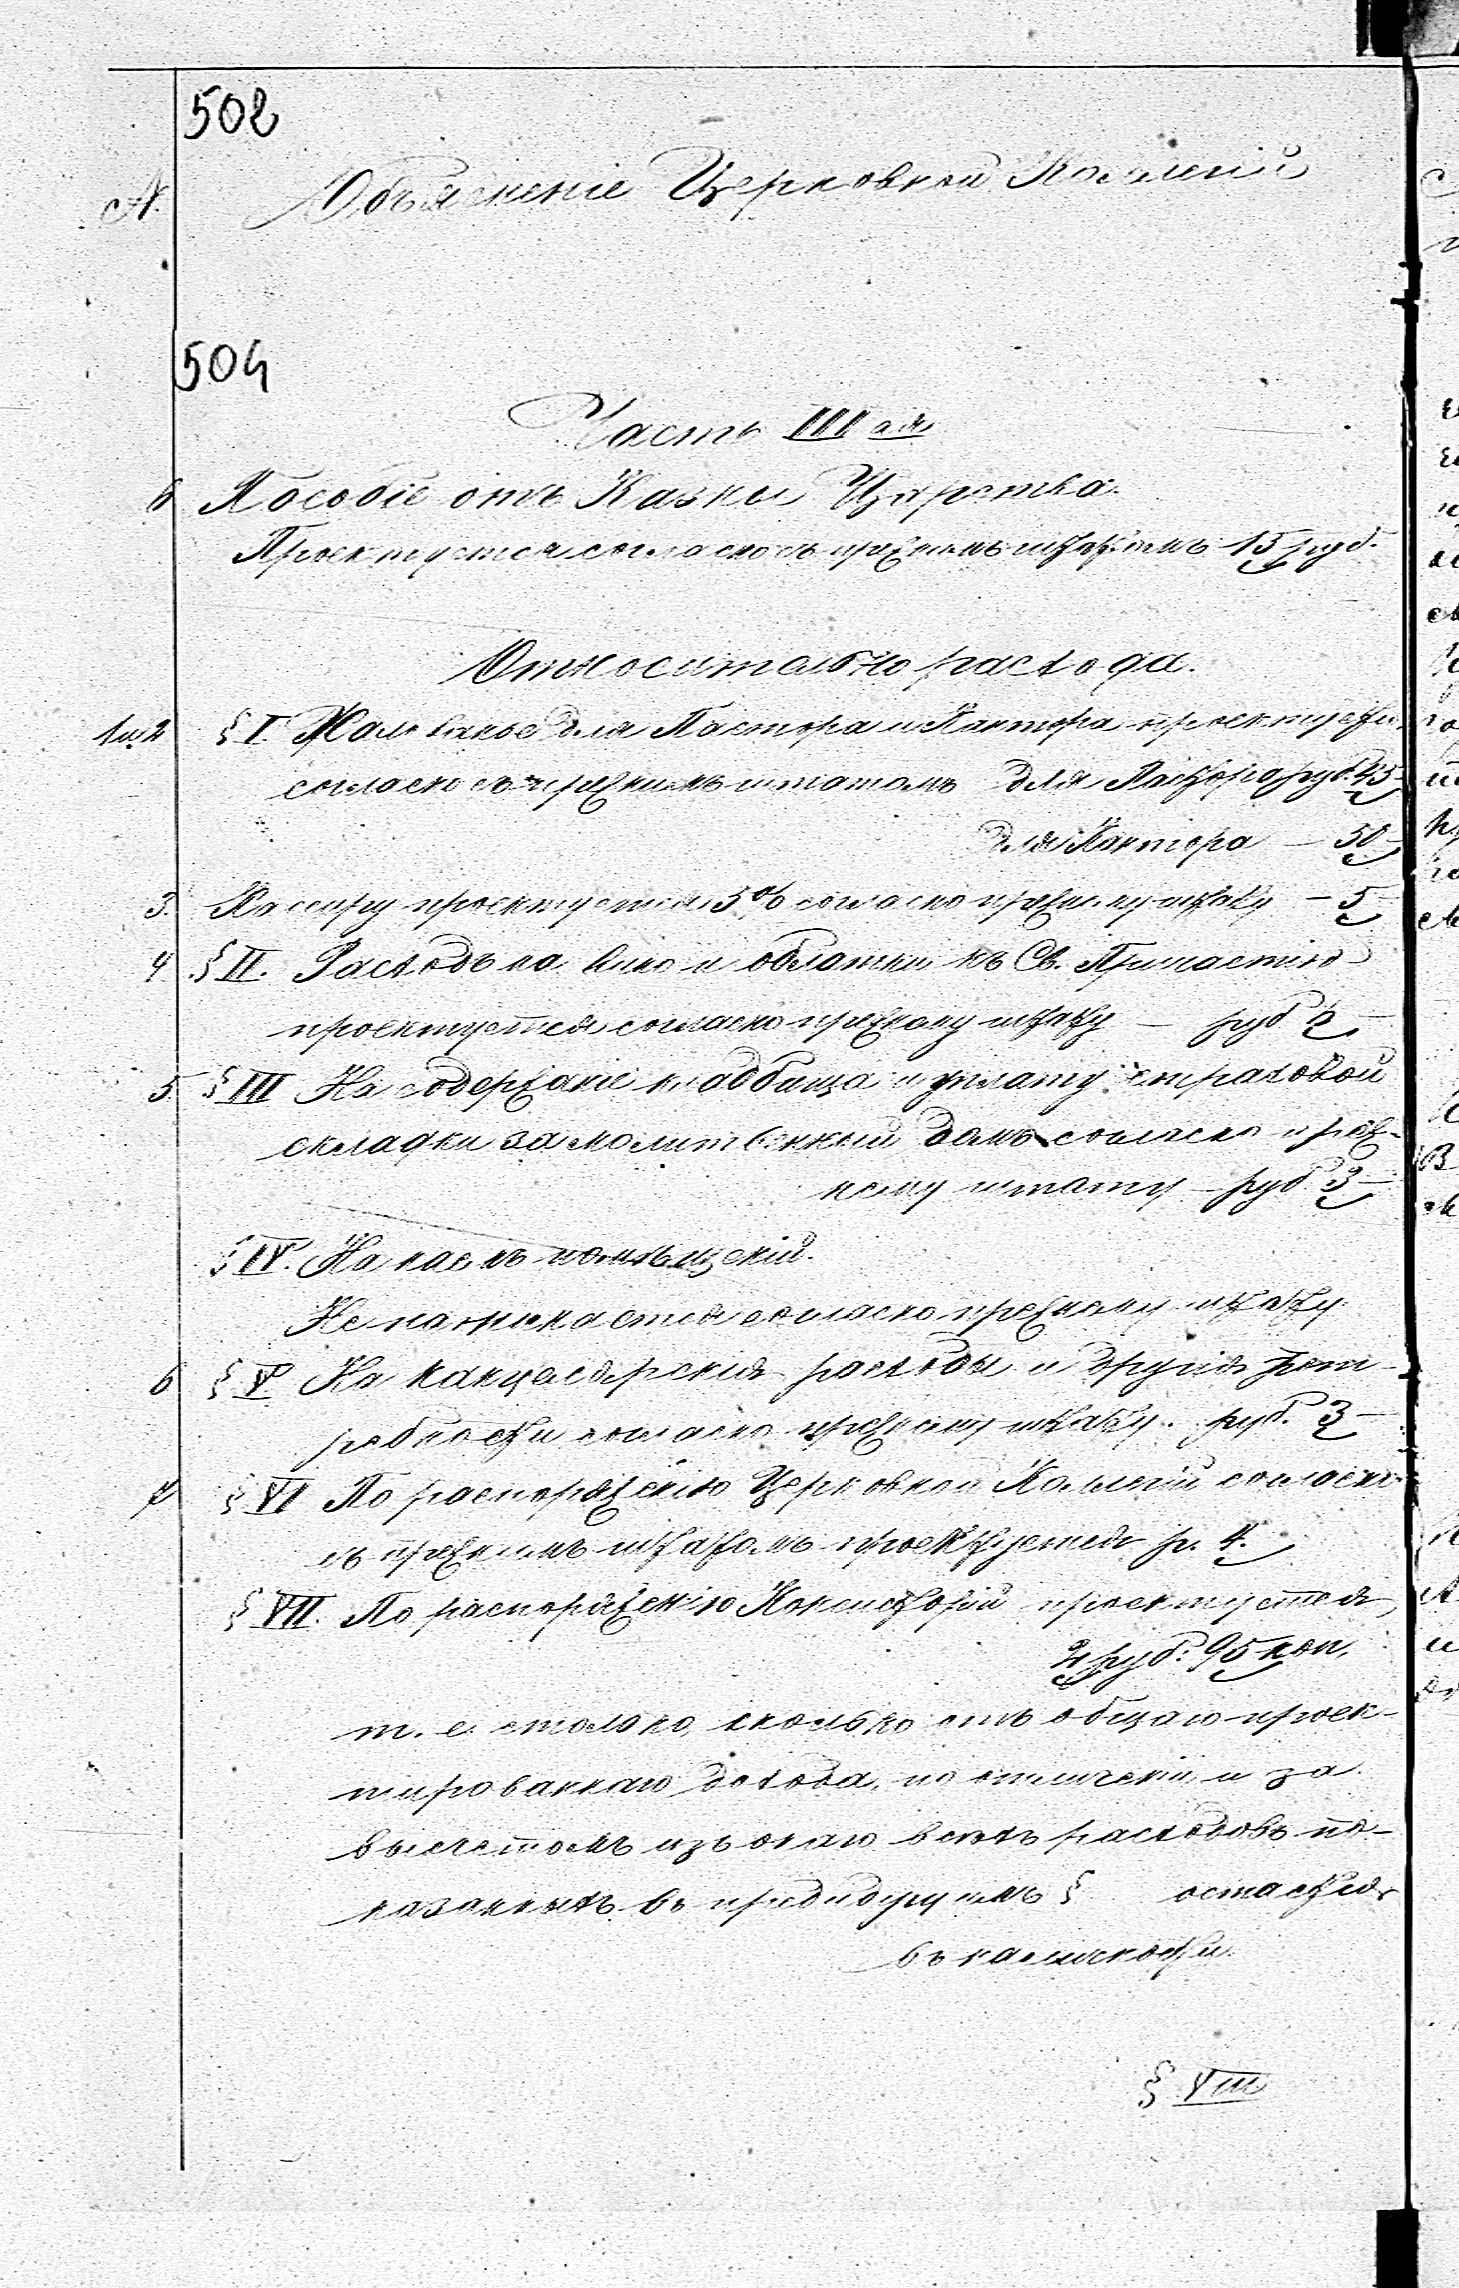 502
№ Объясненіе Церковной Коллегіи
504
Часть III ая
6 Пособіе отъ Казны Царства.
Проектуется согласно съ прежнимъ штатомъ 15 руб.
Относительно расхода.
1 и 2 § I Жалованье для Пастора и Кантора проектуется
согласно съ прежнимъ штатомъ для Пастора руб. 45
для Кантора – 50 –
3. Кассиру проектуется 5% согласно прежнему штату – 5 –
4 § II. Расходъ на вино и облатки къ Св. Причастію
проектуется согласно прежнему штату – руб 2 –
5. § III На содержаніе кладбища и уплату страховой
складки за молитвенный домъ согласно преж-
нему штату – руб 3 –
§ IV. На наемъ помѣщеній.
Не назначается согласно прежнему штату.
6 § V На канцелярскія расходы и другія пот-
ребности согласно прежнему штату. руб. 3 –
7 § VI По распоряженію Церковной Коллегіи согласно
съ прежнимъ штатомъ проектуется р. 4.
§ VII. По распоряженію Консисторіи проектуется,
2 руб: 95 коп.
т. е. столько, сколько отъ общаго проек-
тированнаго дохода, по отличеніи и за
вычетомъ изъ онаго всѣхъ расходовъ по-
казанныхъ въ предидущемъ § остается
въ наличности.
§ VIII